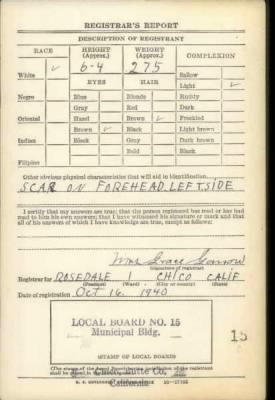 REGISTRAR'S REPORT
DESCRIPTION OF REGISTRANT
RACE HEIGHT (Approx.) WEIGHT (Approx.) COMPLEXION
6-4 275
White ✓ Sallow
EYES HAIR Light ✓
Negro Blue Blonde Ruddy
Gray Red Dark
Oriental Hazel Brown ✓ Freckled
Brown ✓ Black Light brown
Indian Black Gray Dark brown
Bald Black
Filipino
Other obvious physical characteristics that will aid in identification
SCAR ON FOREHEAD LEFT SIDE
I certify that my answers are true; that the person registered has read or has had
read to him his own answers; that I have witnessed his signature or mark and that
all of his answers of which I have knowledge are true, except as follows:
Mrs Grace
(Signature of registrar)
Registrar for ROSEDALE 1 CHICO CALIF
(Precinct) (Ward) (City or county) (State)
Date of registration Oct 16, 1940
LOCAL BOARD NO. 15
Municipal Bldg.
15
Butte Co.
(STAMP OF LOCAL BOARD)
(The stamp of the Local Board having jurisdiction of the registrant
shall be placed in the above space.)